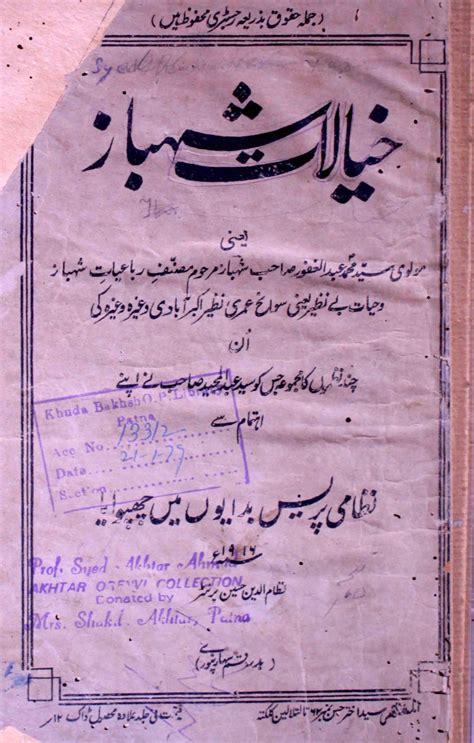 (جملہ حقوق بذریعہ رجسٹری محفوظ ہیں)
خیالات شہباز
یعنی
مولوی سید محمد عبدالغفور صاحب شہباز مرحوم مصنف رباعیات شہباز
و حیات بے نظیر یعنی سوانح عمری نظیر اکبرآبادی وغیرہ وغیرہ کی
اُن
چند نظموں کا مجموعہ جس کو سید عبدالمجید صاحب نے اپنے
اہتمام سے
Khuda Bakhsh O.P. Library
Patna
Acc No. 13312
Date 21-1-79
Section
نظامی پریس بدایوں میں چھپوایا
۱۹۱۶ء
Prof. Syed Akhtar Ahmad
AKHTAR ORENVI COLLECTION
Donated by
Mrs. Shakil Akhtar, Patna
نظام الدین حسین پرنٹر
سید اختر حسن نمبر ۶۲ تالتلا لین کلکتہ
قیمت فی جلد علاوہ محصول ڈاک ۱۲